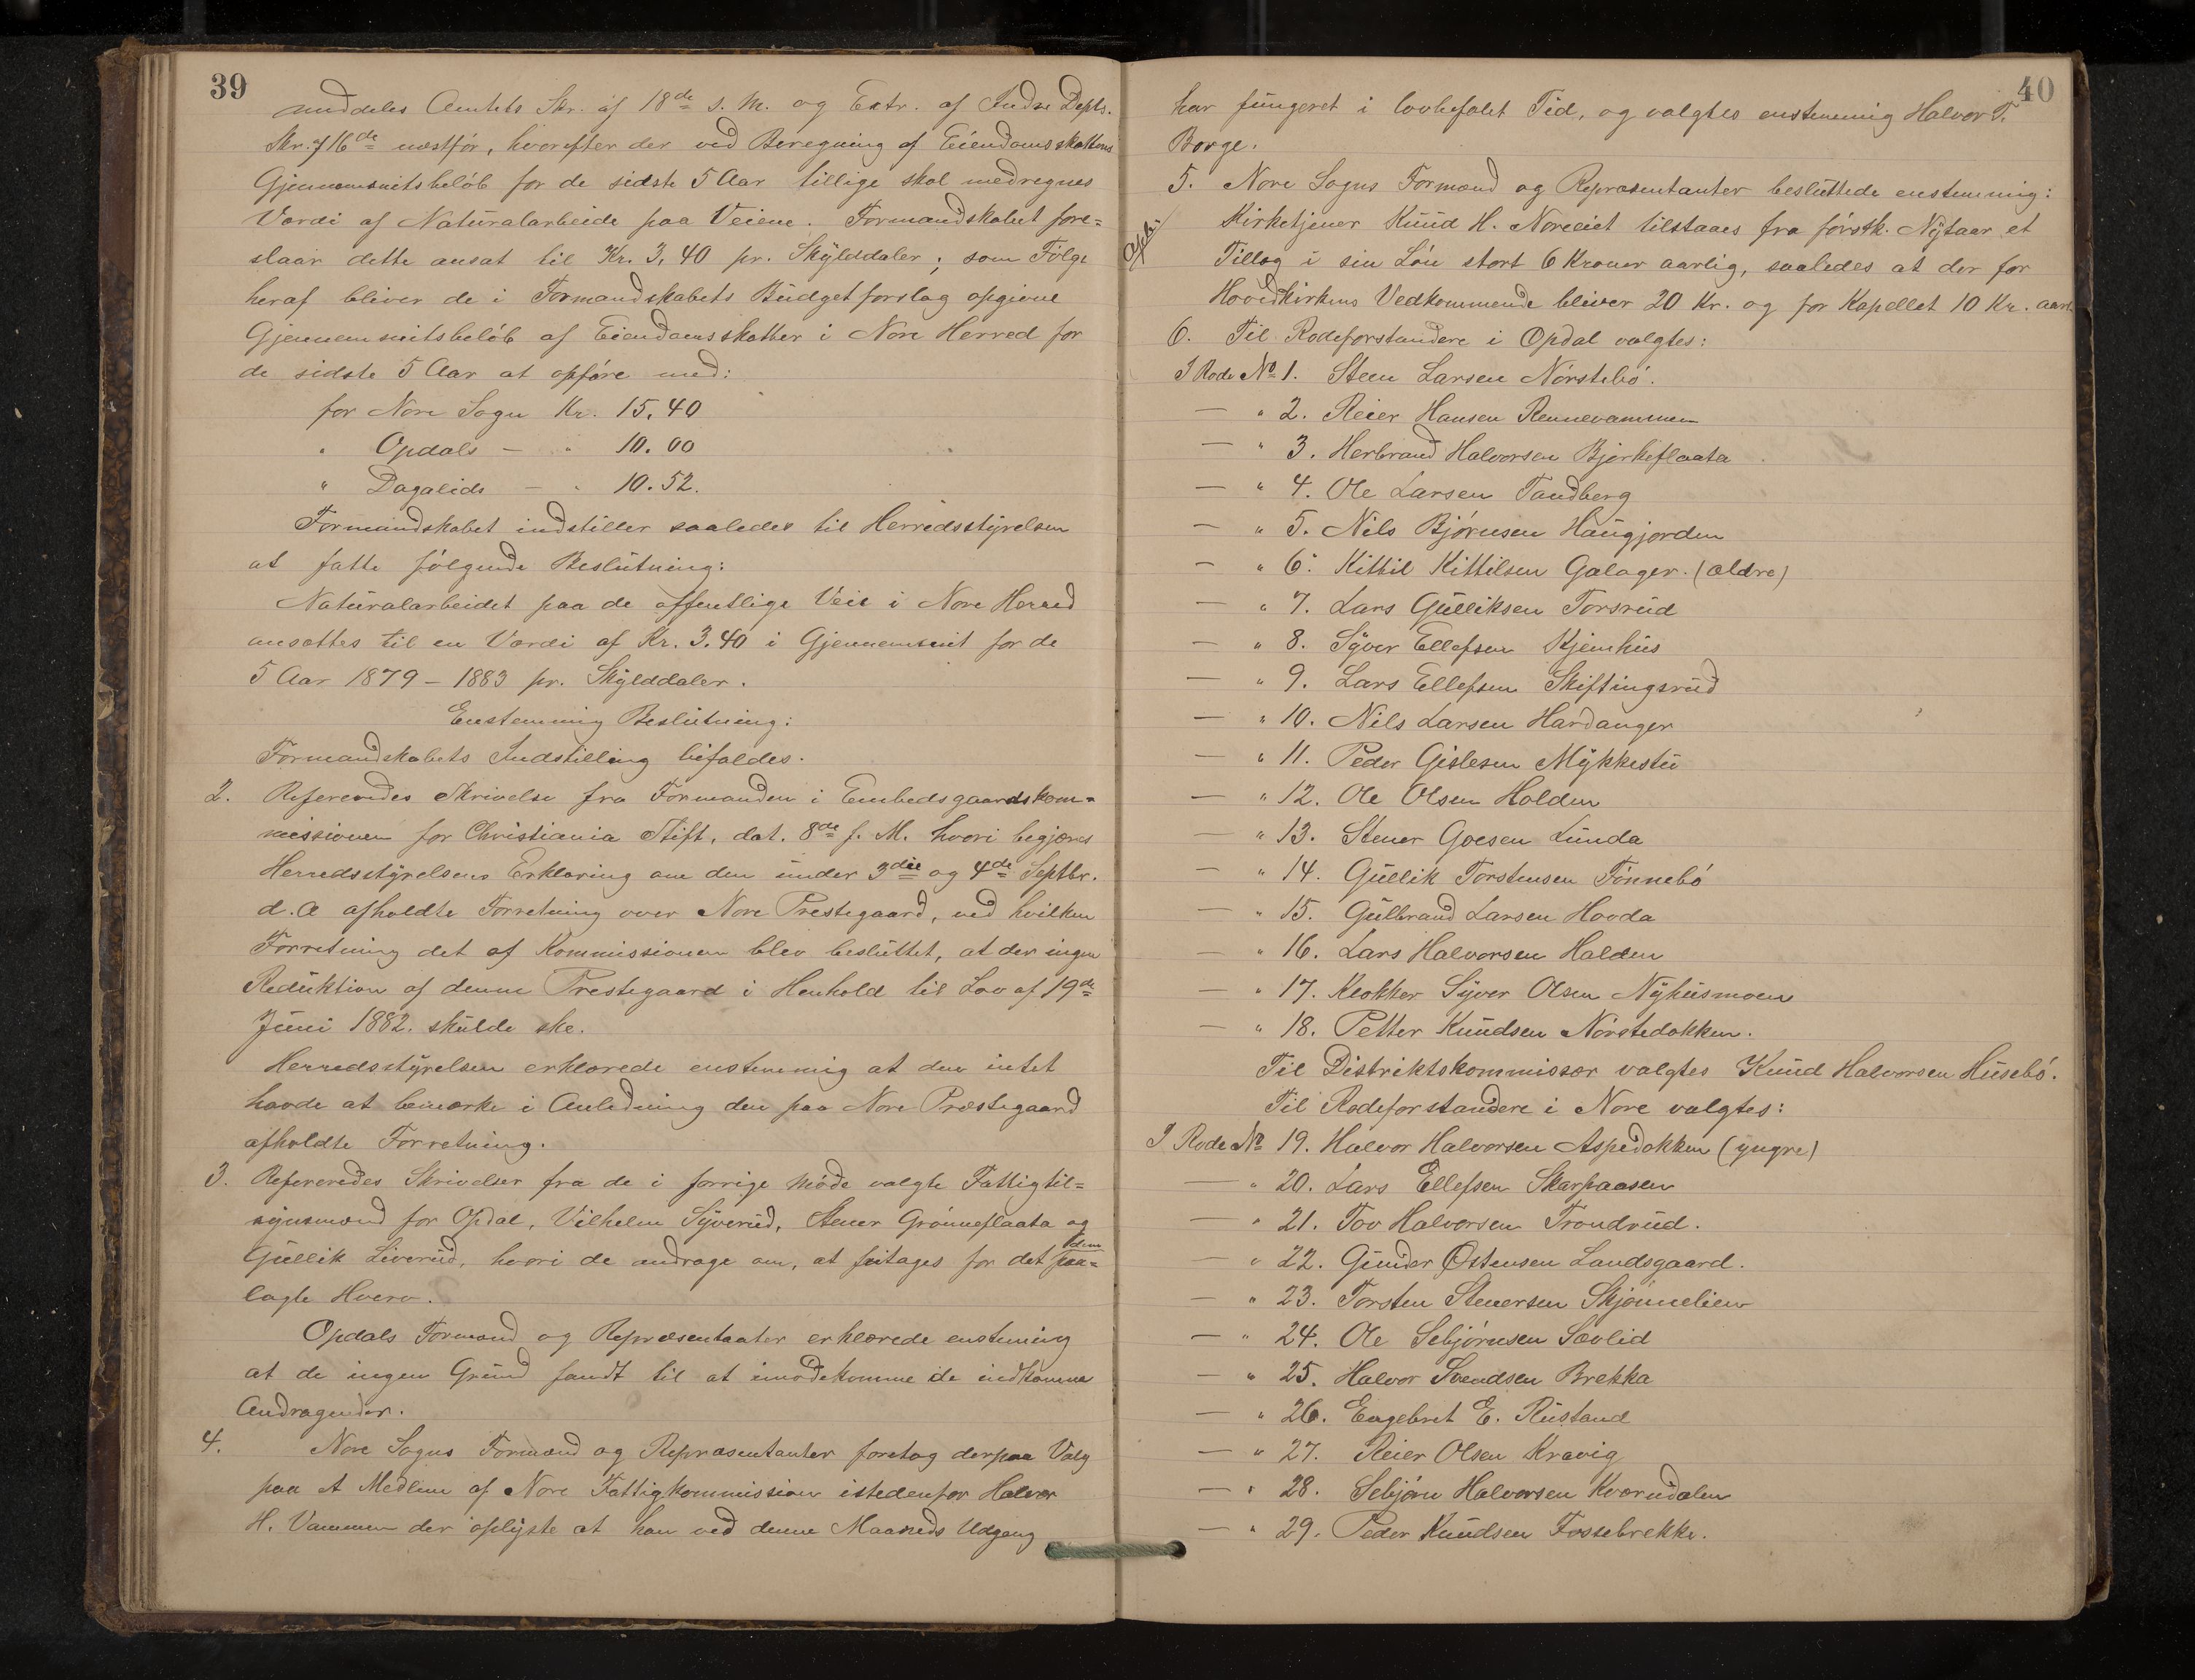 39
meddeles Amtets Skr. af 18de s. M. og Extr. af Indre Depts.
Skr. af 16de næstfør, hvorefter der ved Beregning af Eiendomsskattens
Gjennemsnitsbeløb for de sidste 5 Aar tillige skal medregnes
Værdi af Naturalarbeide paa Veiene. Formandskabet fore-
slaar dette ansat til Kr. 3,40 pr. Skylddaler; som Følge
heraf bliver de i Formandskabets Budgetforslag opgivne
Gjennemsnitsbeløb af Eiendomsskatter i Nore Herred for
de sidste 5 Aar at opføre med:
for Nore Sogn Kr. 15.40
" Opdals — " 10.00
" Dagalids — " 10.52.
Formandskabet indstiller saaledes til Herredsstyrelsen
at fatte følgende Beslutning:
Naturalarbeidet paa de offentlige Veie i Nore Herred
ansættes til en Værdi af Kr. 3.40 i Gjennemsnit for de
5 Aar 1879 – 1883 pr. Skylddaler.
Enstemmig Beslutning:
Formandskabets Indstilling bifaldes.
2. Refereredes Skrivelse fra Formanden i Embedsgaardskom-
missionen for Christiania Stift, dat. 8de f. M. hvori begjæres
Herredsstyrelsens Erklæring om den under 3die og 4de Septbr.
d. A afholdte Forretning over Nore Prestegaard, ved hvilken
Forretning det af Kommissionen blev besluttet, at der ingen
Reduktion af denne Prestegaard i Henhold til Lov af 19de
Juni 1882. skulde ske.
Herredsstyrelsen erklærede enstemmig at den intet
havde at bemærke i Anledning den paa Nore Præstegaard
afholdte Forretning.
3. Refereredes Skrivelser fra de i forrige Møde valgte Fattigtil-
synsmænd for Opdal, Vilhelm Syverud, Stener Grønneflaata og
Gullik Liverud, hvori de andrage om, at fritages for det dem paa-
lagte Hverv.
Opdals Formænd og Repræsentanter erklærede enstemmig
at de ingen Grund fandt til at imødekomme de indkomne
Andragender.
4. Nore Sogns Formænd og Repræsentanter foretog derpaa Valg
paa et Medlem af Nore Fattigkommission istedenfor Halvor
H. Vammen der oplyste at han ved denne Maaneds Udgang
40
har fungeret i lovbefalet Tid, og valgtes enstemmig Halvor T.
Borge.
5. Nore Sogns Formænd og Repræsentanter besluttede enstemmig:
Kirketjener Knud H. Noreeiet tilstaaes fra førstk. Nytaar et
Tillæg i sin Løn stort 6 Kroner aarlig, saaledes at der for
Hovedkirkens Vedkommende bliver 20 Kr. og for Kapellet 10 Kr. aarl.
6. Til Rodeforstandere i Opdal valgtes:
I Rode No 1. Steen Larsen Nørstebø.
— " 2. Reier Hansen Rennevammen
— " 3. Herbrand Halvorsen Bjørkeflaata
— " 4. Ole Larsen Tandberg
— " 5. Nils Bjørnsen Haugjorden
— " 6. Kittil Kittilsen Galager. (ældre)
— " 7. Lars Gulliksen Torsrud
— " 8. Syver Ellefsen Kjemhus
— " 9. Lars Ellefsen Skiftingsrud
— " 10. Nils Larsen Hardanger
— " 11. Peder Gislesen Mykkestu
— " 12. Ole Olsen Holden
— " 13. Stener Goesen Lunda
— " 14. Gullik Torstensen Tønnebø
— " 15. Gulbrand Larsen Hovda
— " 16. Lars Halvorsen Halden
— " 17. Klokker Syver Olsen Nyhusmoen
— " 18. Petter Knudsen Nørstedokken.
Til Distriktskommissær valgtes Knud Halvorsen Husebø.
Til Rodeforstandere i Nore valgtes:
I Rode No 19. Halvor Halvorsen Aspedokken (yngre)
— " 20. Lars Ellefsen Skarpaasen
— " 21. Tov Halvorsen Trondrud.
— " 22. Gunder Østensen Landsgaard.
— " 23. Torsten Stenersen Skjønnelien
— " 24. Ole Sebjørnsen Sævlid
— " 25. Halvor Svendsen Brekka
— " 26. Engebret E. Rustand
— " 27. Reier Olsen Kravig
— " 28. Sebjørn Halvorsen Kværndalen
— " 29. Peder Knudsen Fossebrekke.